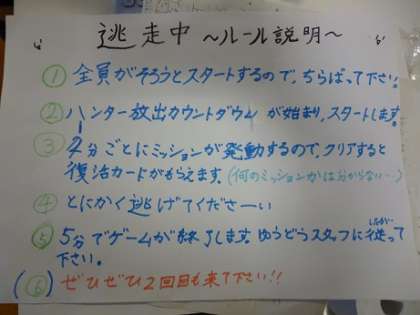 逃走中 ～ルール説明～
① 全員がそろうとスタートするので、ちらばって下さい。
② ハンター放出カウントダウンが始まり、スタートします。
③ 2分ごとにミッションが発動するので、クリアすると
復活カードがもらえます。(何のミッションかは分からない…)
④ とにかく逃げてくださーい
⑤ 5分でゲームが終了します。ゆうどうスタッフに従って
下さい。
(⑥) ぜひぜひ2回目も来て下さい!!